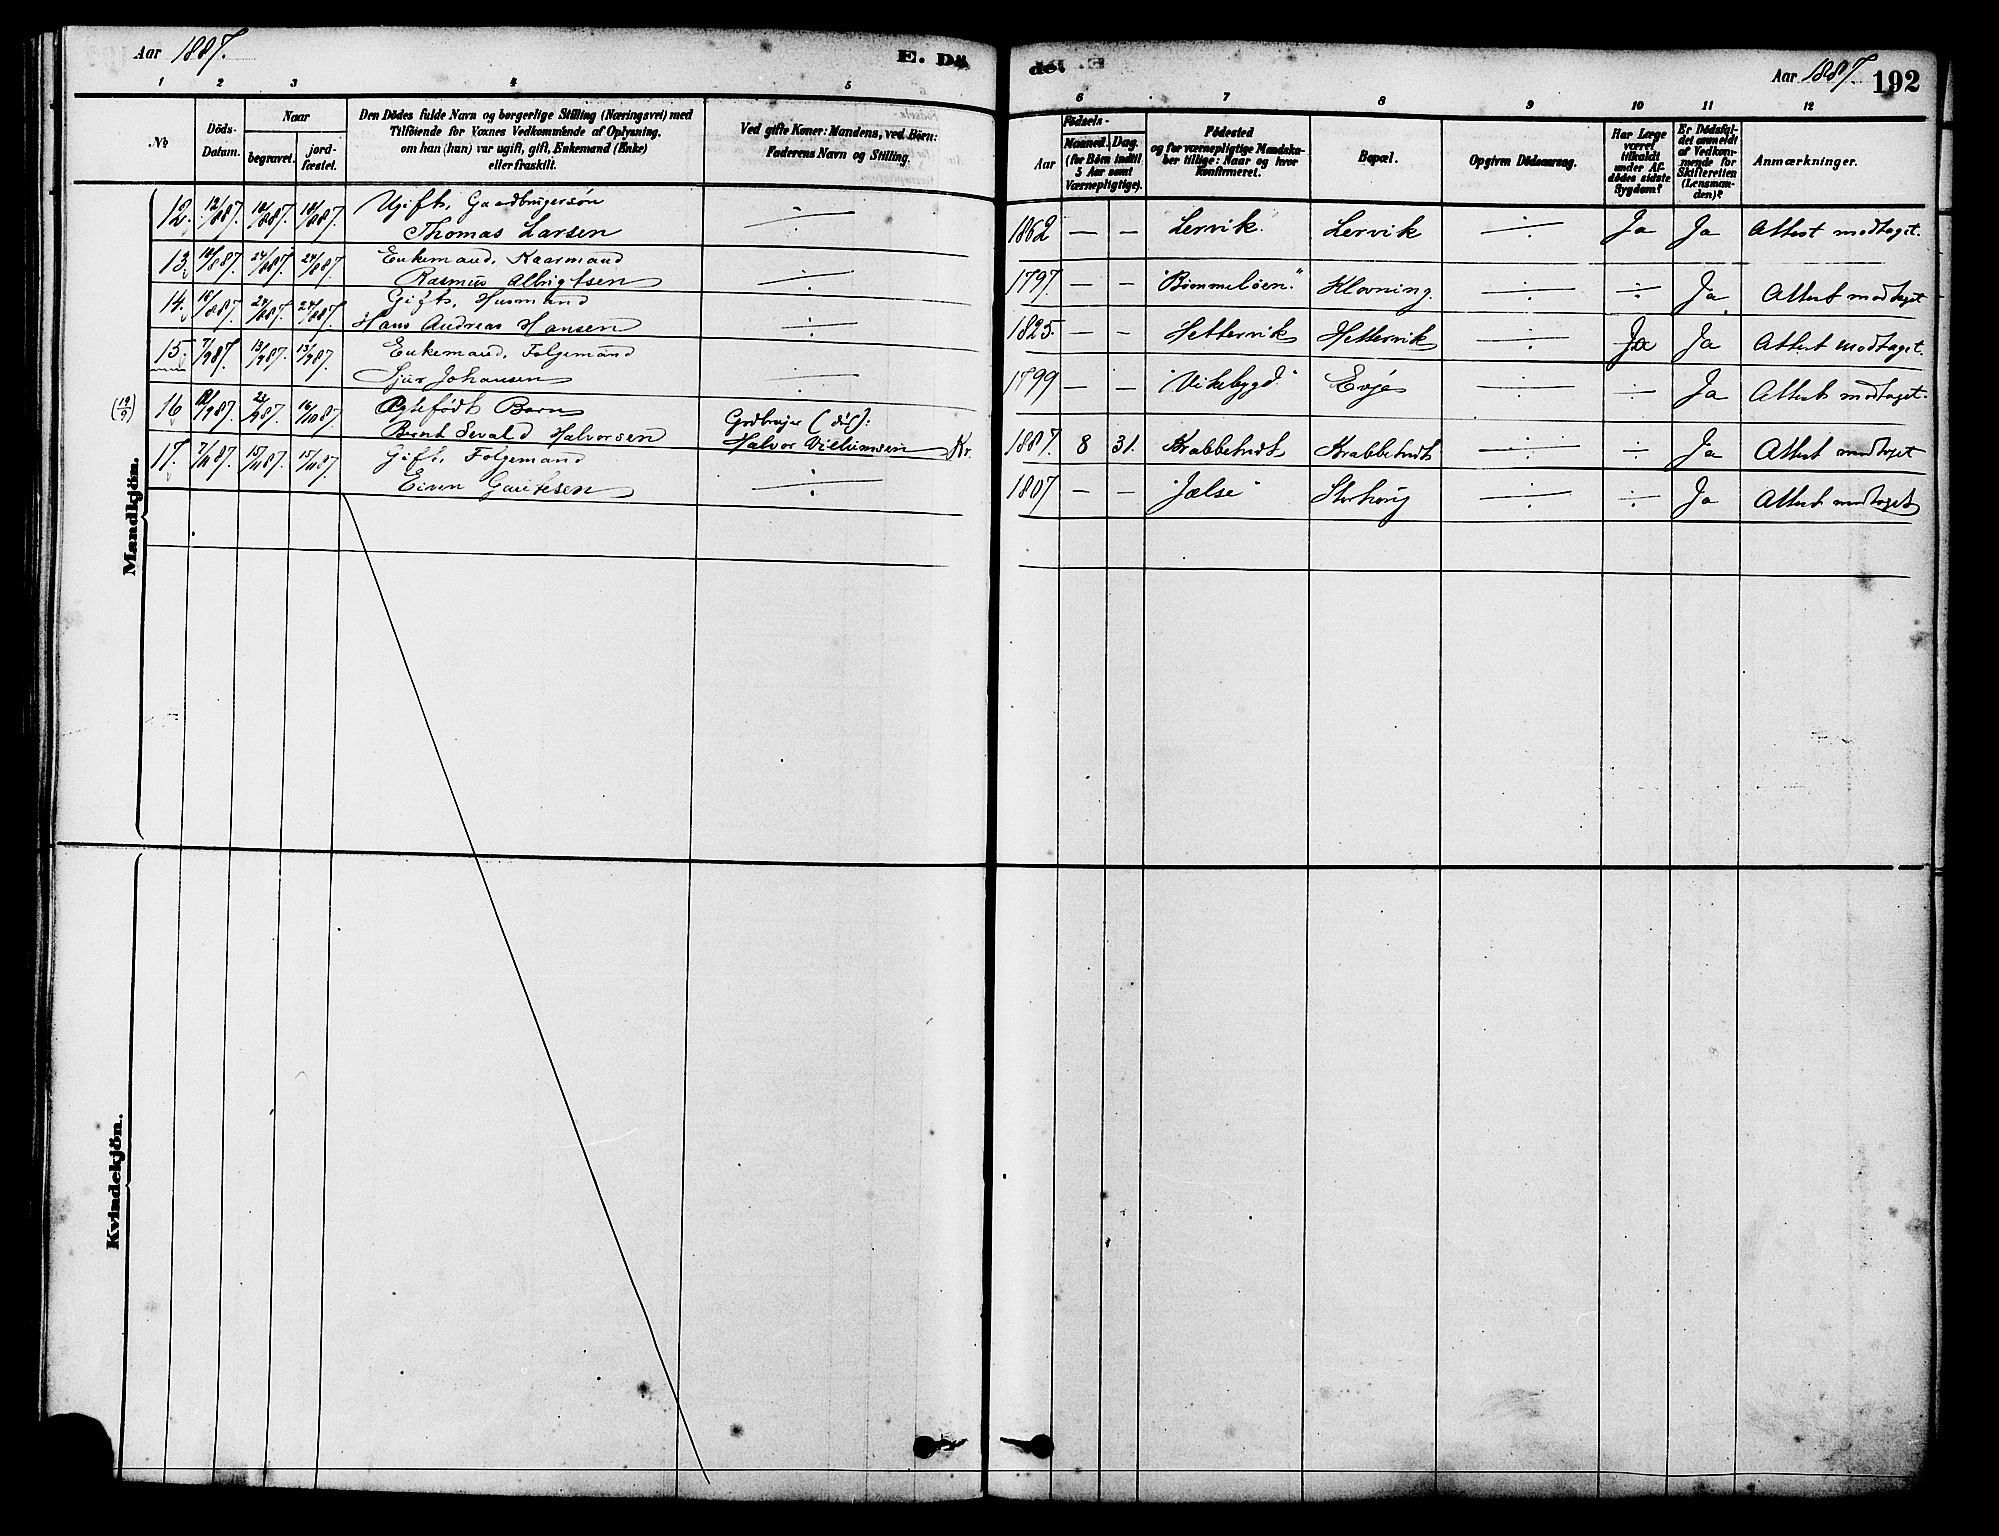 Aar 1887.
E. Dö
de. E
Aar 1887. 192
1 2 3 4 5
6 7 8 9 10 11 12
No
Döds-
Datum.
Naar
begravet.
jord-
fæstet.
Den Dödes fulde Navn og borgerlige Stilling (Næringsvei) med
Tilföiende for Voxnes Vedkommende af Oplysning,
om han (hun) var ugift, gift, Enkemand (Enke)
eller fraskilt.
Ved gifte Koner: Mandens, ved Börn:
Faderens Navn og Stilling.
Födsels-
Aar
Maaned.
Dag.
(for Börn indtil
5 Aar samt
Værnepligtige).
Födested
og for værnepligtige Mandska-
ber tillige: Naar og hvor
konfirmeret.
Bopæl.
Opgiven Dödsaarsag.
Har Læge
været
tilkaldt
under Af-
dödes sidste
Sygdom?
Er Dödsfal-
det anmeldt
af Vedkom-
mende for
Skifteretten
(Lensman-
den)?
Anmærkninger.
Mandkjön.
12. 12/8 87. 18/8 87. 18/8 87. Ugift, Gaardbrugersön
Thomas Larsen ÷ 1862 — — Lervik. Lervik ÷ Ja Ja Attest modtaget.
13. 18/8 87. 24/8 87. 24/8 87. Enkemand, Kaarmand
Rasmus Albrigtsen ÷ 1797. — — "Bömmelöen." Klovning. ÷ ÷ Ja Attest modtaget
14. 18/8 87. 24/8 87. 24/8 87. Gift, Husmand
Hans Andreas Hansen ÷ 1825. — — Hettervik Hettervik ÷ Ja Ja Attest modtaget.
15. 7/9 87. 13/9 87. 13/9 87. Enkemand, Folgemand
Sjur Johansen ÷ 1799 — — "Vikebygd." Evje ÷ ÷ Ja Attest modtaget.
(19/9) 16 87. 23/9 87. 16/10 87. Ægtefödt Barn Grdbruger
Bernt Sevald Halvorsen Halvor Villumsen Kr. 1887. 8 31. Krabbetveit Krabbetveit ÷ ÷ Ja Attest modtaget
17. 7/11 87. 15/11 87. 15/11 87. Gift, Folgemand
Eiven Gautesen ÷ 1807 — — "Jælse" Storhoug ÷ ÷ Ja Attest modtaget
Kvindekjön.